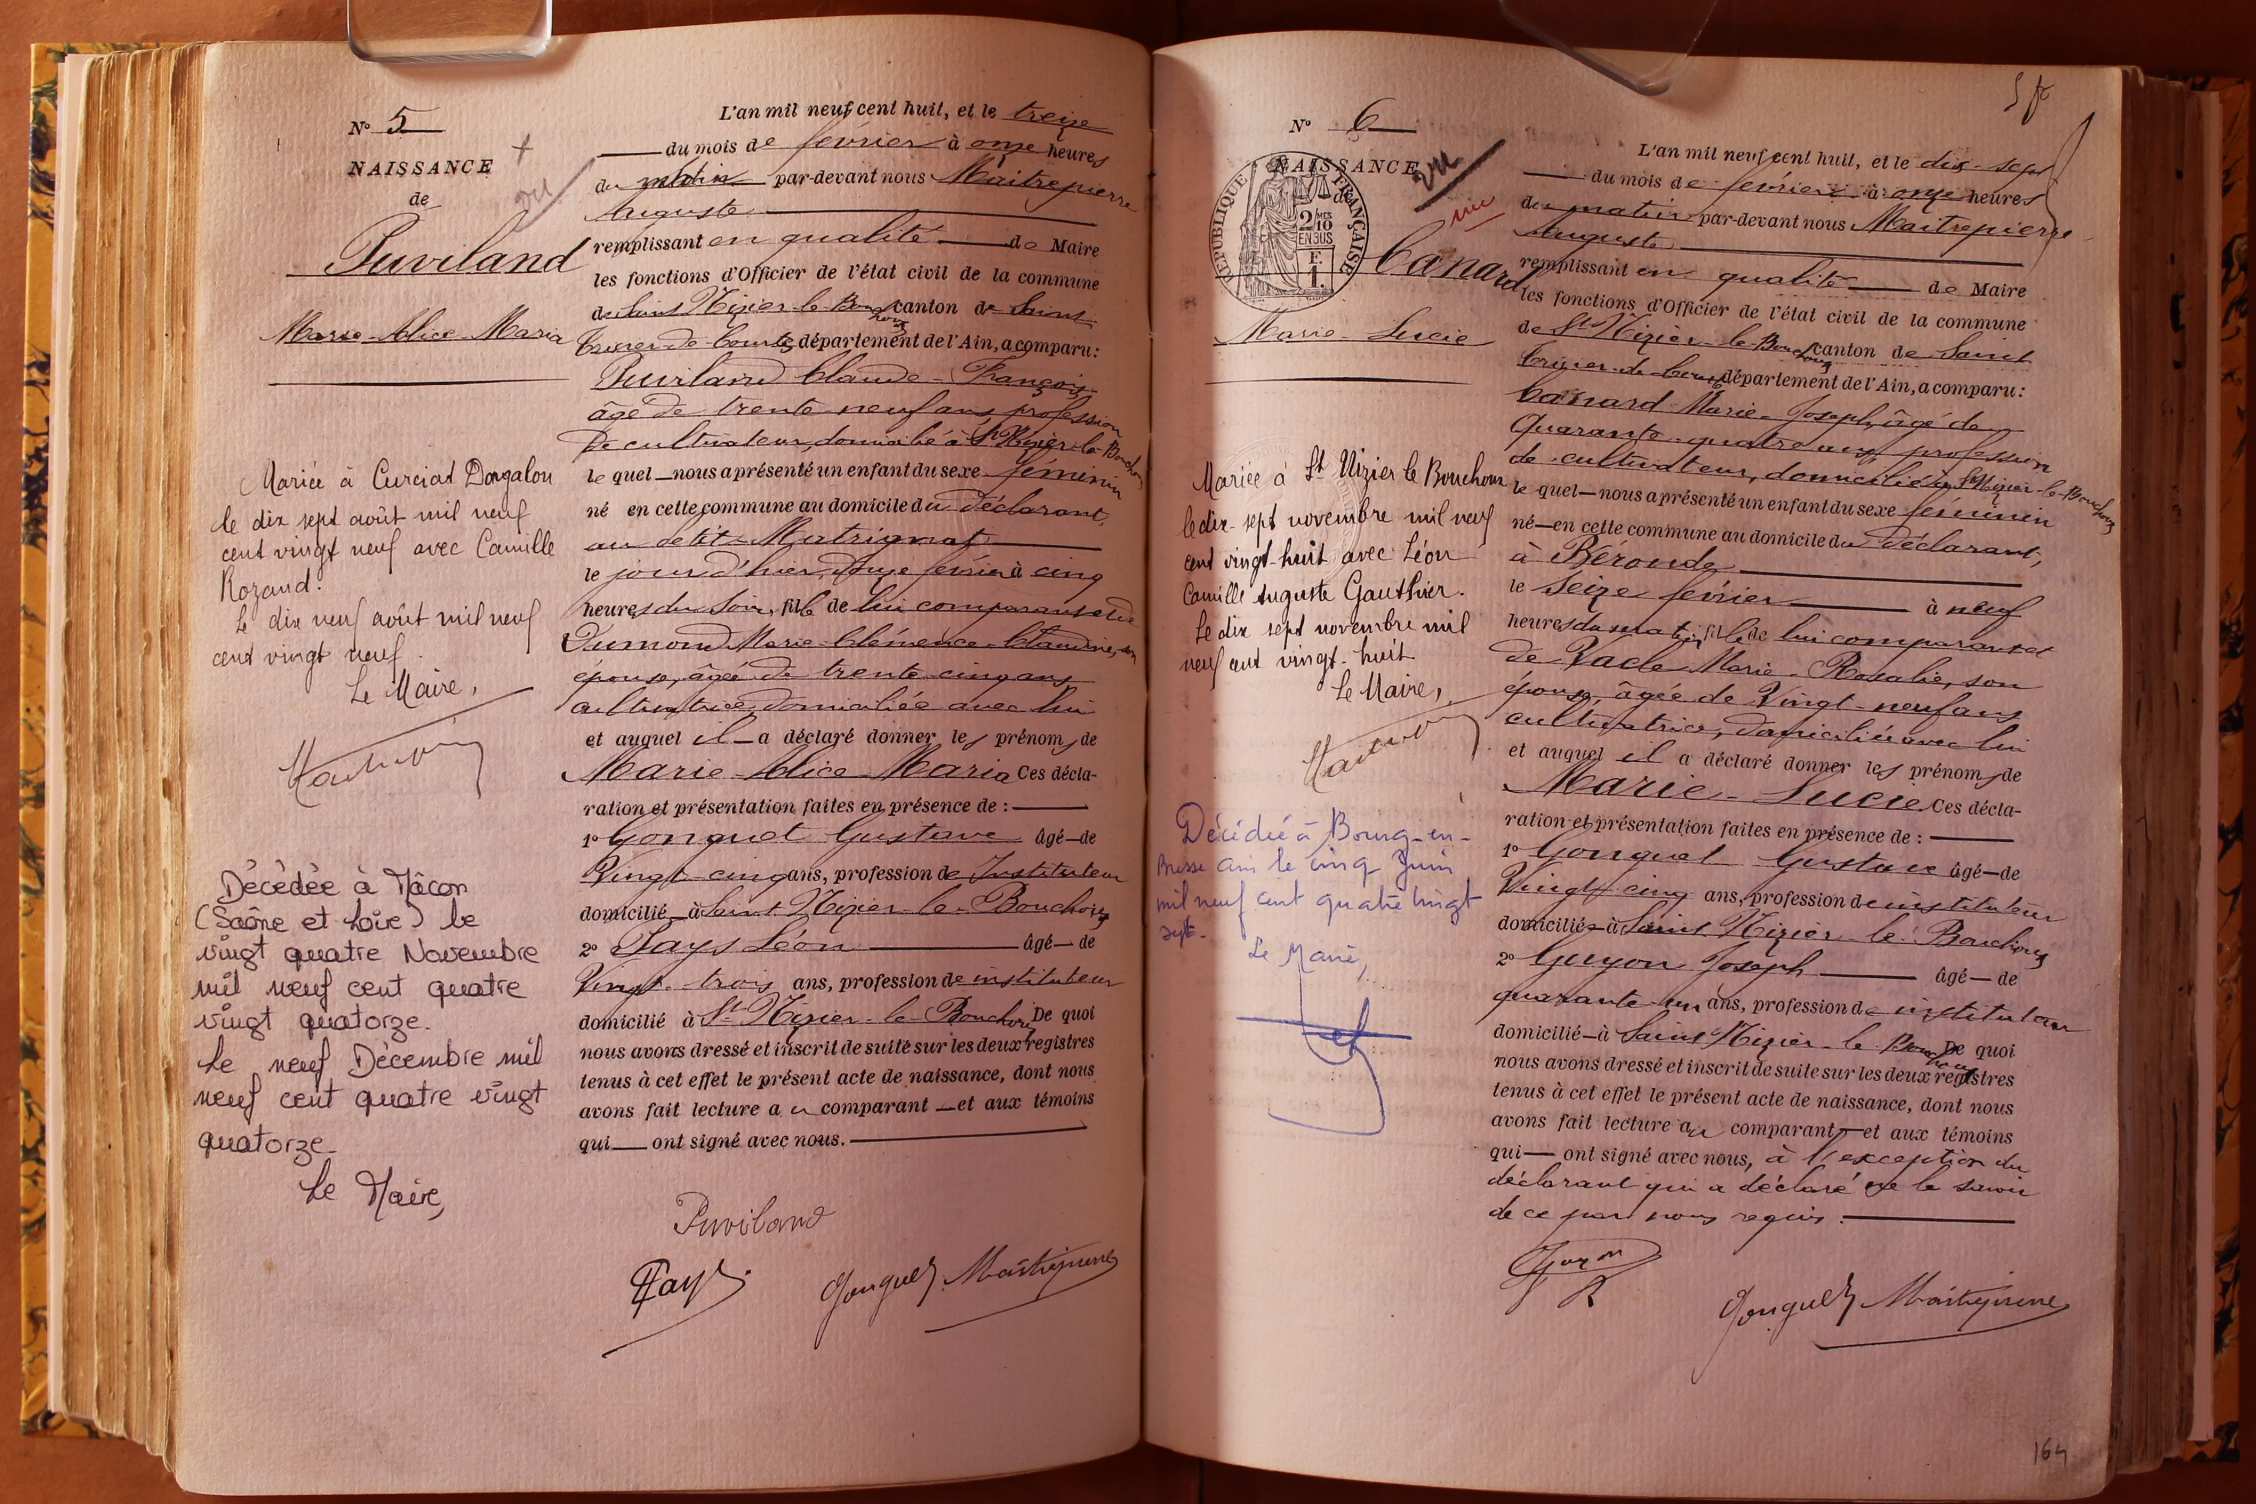 N° 5
NAISSANCE
de
Puviland
Marie-Alice-Maria
+
vu
Mariée à Curciat Dongalon
le dix sept août mil neuf
cent vingt neuf avec Camille
Rozand.
Le dix neuf août mil neuf
cent vingt neuf.
Le Maire,
Décédée à Mâcon
(Saône et Loire) le
vingt quatre Novembre
mil neuf cent quatre
vingt quatorze.
Le neuf Décembre mil
neuf cent quatre vingt
quatorze.
Le Maire,
L'an mil neuf cent huit, et le treize
du mois de février à onze heures
du matin par-devant nous Maitrepierre
Auguste
remplissant en qualité de Maire
les fonctions d'Officier de l'état civil de la commune
de Saint Nizier-le-Bouchoux canton de Saint
Trivier-de-Courtes département de l'Ain, a comparu :
Puviland Claude-François
âgé de trente neuf ans profession
de cultivateur, domicilié à St Nizier-le-Bouchoux
le quel nous a présenté un enfant du sexe féminin
né en cette commune au domicile du déclarant,
au petit-Matrignat
le jour d'hier, douze février à cinq
heures du soir, fille de lui comparant et de
Dumond Marie-Clémence-Claudine, son
épouse, âgée de trente cinq ans
cultivatrice, domiciliée avec lui
et auquel il a déclaré donner les prénoms de
Marie-Alice-Maria Ces décla-
ration et présentation faites en présence de :
1° Gonguet Gustave âgé de
Vingt-cinq ans, profession de Instituteur
domicilié à Saint Nizier-le-Bouchoux
2° Pays Léon âgé de
Vingt-trois ans, profession de instituteur
domicilié à St Nizier-le-Bouchoux De quoi
nous avons dressé et inscrit de suite sur les deux registres
tenus à cet effet le présent acte de naissance, dont nous
avons fait lecture au comparant et aux témoins
qui ont signé avec nous.
Puviland
Pays
Gonguet Maitrepierre
N° 6
NAISSANCE
de
RÉPUBLIQUE FRANÇAISE
2/10 MES
EN SUS
F.
1.
vu
vu
Canard
Marie-Lucie
Mariée à St Nizier le Bouchoux
le dix-sept novembre mil neuf
cent vingt-huit avec Léon
Camille Auguste Gauthier.
Le dix sept novembre mil
neuf cent vingt-huit
Le Maire,
Décédée à Bourg-en-
Bresse Ain le cinq Juin
mil neuf cent quatre vingt
sept.
Le Maire,
L'an mil neuf cent huit, et le dix-sept
du mois de février à onze heures
du matin par-devant nous Maitrepierre
Auguste
remplissant en qualité de Maire
les fonctions d'Officier de l'état civil de la commune
de St Nizier-le-Bouchoux canton de Saint
Trivier-de-Courtes département de l'Ain, a comparu :
Canard Marie-Joseph, âgé de
Quarante-quatre ans, profession
de cultivateur, domicilié à St Nizier-le-Bouchoux
le quel nous a présenté un enfant du sexe féminin
né en cette commune au domicile du déclarant,
à Béronde
le seize février à neuf
heures du matin, fille de lui comparant et
de Vacle Marie-Rosalie, son
épouse, âgée de Vingt-neuf ans
cultivatrice, domiciliée avec lui
et auquel il a déclaré donner les prénoms de
Marie-Lucie Ces décla-
ration et présentation faites en présence de :
1° Gonguet Gustave âgé de
Vingt cinq ans, profession de instituteur
domicilié à Saint Nizier-le-Bouchoux
2° Guyon Joseph âgé de
quarante-un ans, profession de instituteur
domicilié à Saint Nizier-le-Bouchoux De quoi
nous avons dressé et inscrit de suite sur les deux registres
tenus à cet effet le présent acte de naissance, dont nous
avons fait lecture au comparant et aux témoins
qui ont signé avec nous, à l'exception du
déclarant qui a déclaré ne le savoir
de ce par nous requis.
Guyon
Gonguet Maitrepierre
164